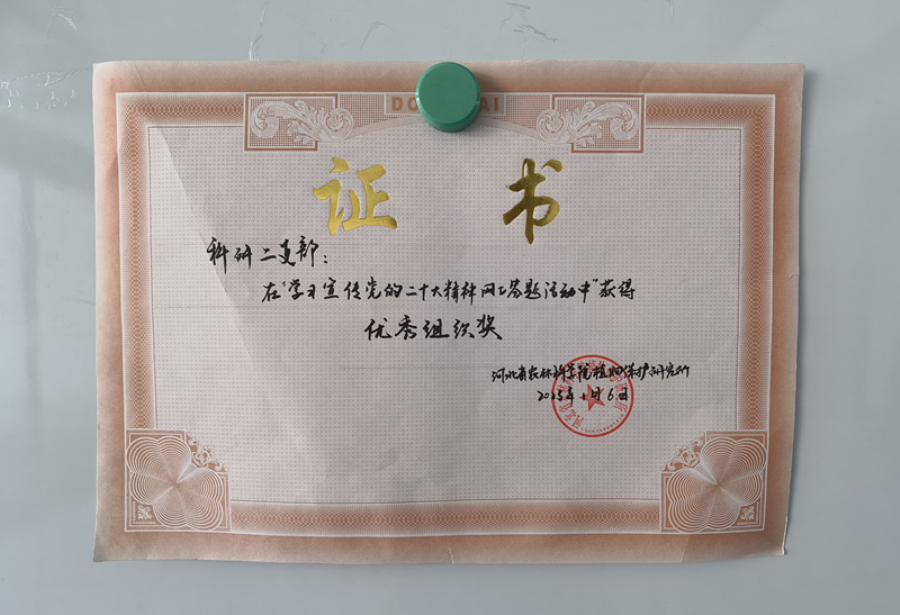 证书
科研二支部：
在“学习宣传党的二十大精神网上答题活动中”获得
优秀组织奖
河北省农林科学院植物保护研究所
2023年1月6日